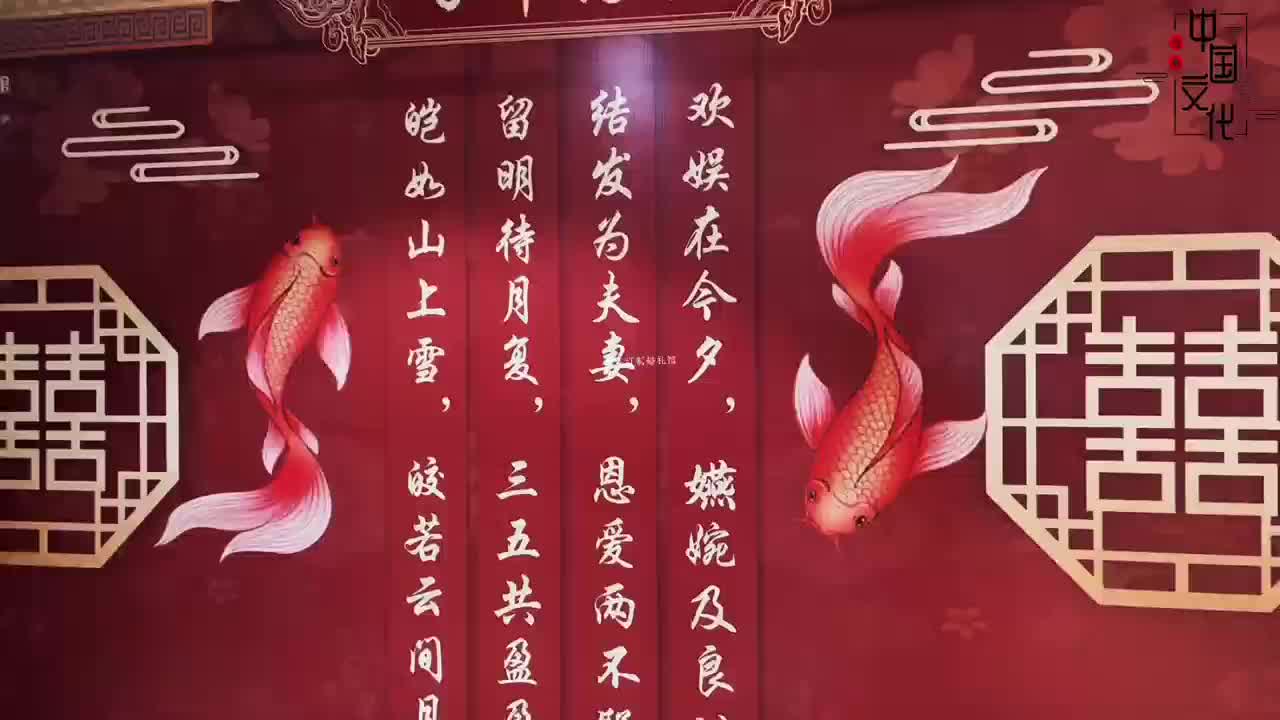 欢娱在今夕,嬿婉及良
结发为夫妻,恩爱两不
留明待月复,三五共盈盈
皑如山上雪,皎若云间月
囍
囍
中国文化